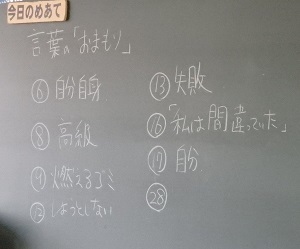 今日のめあて
言葉の「おまもり」
⑥ 自分自身
⑧ 高級
⑨ 燃えるゴミ
⑫ しようとしない
⑬ 失敗
⑯「私は間違っていた」
⑰ 自分
㉘